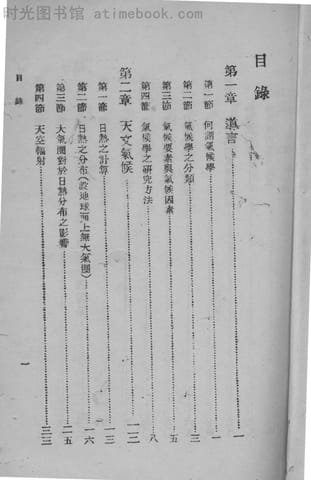 时光图书馆 - atimebook.com
目錄
第一章 導言 一
第一節 何謂氣候學 一
第二節 氣候學之分類 三
第三節 氣候要素與氣候因素 五
第四節 氣候學之研究方法 八
第二章 天文氣候 一二
第一節 日熱之計算 一三
第二節 日熱之分布（設地球面上無大氣圈） 一六
第三節 大氣圈對於日熱分布之影響 二五
第四節 天空輻射 三三
目錄
一